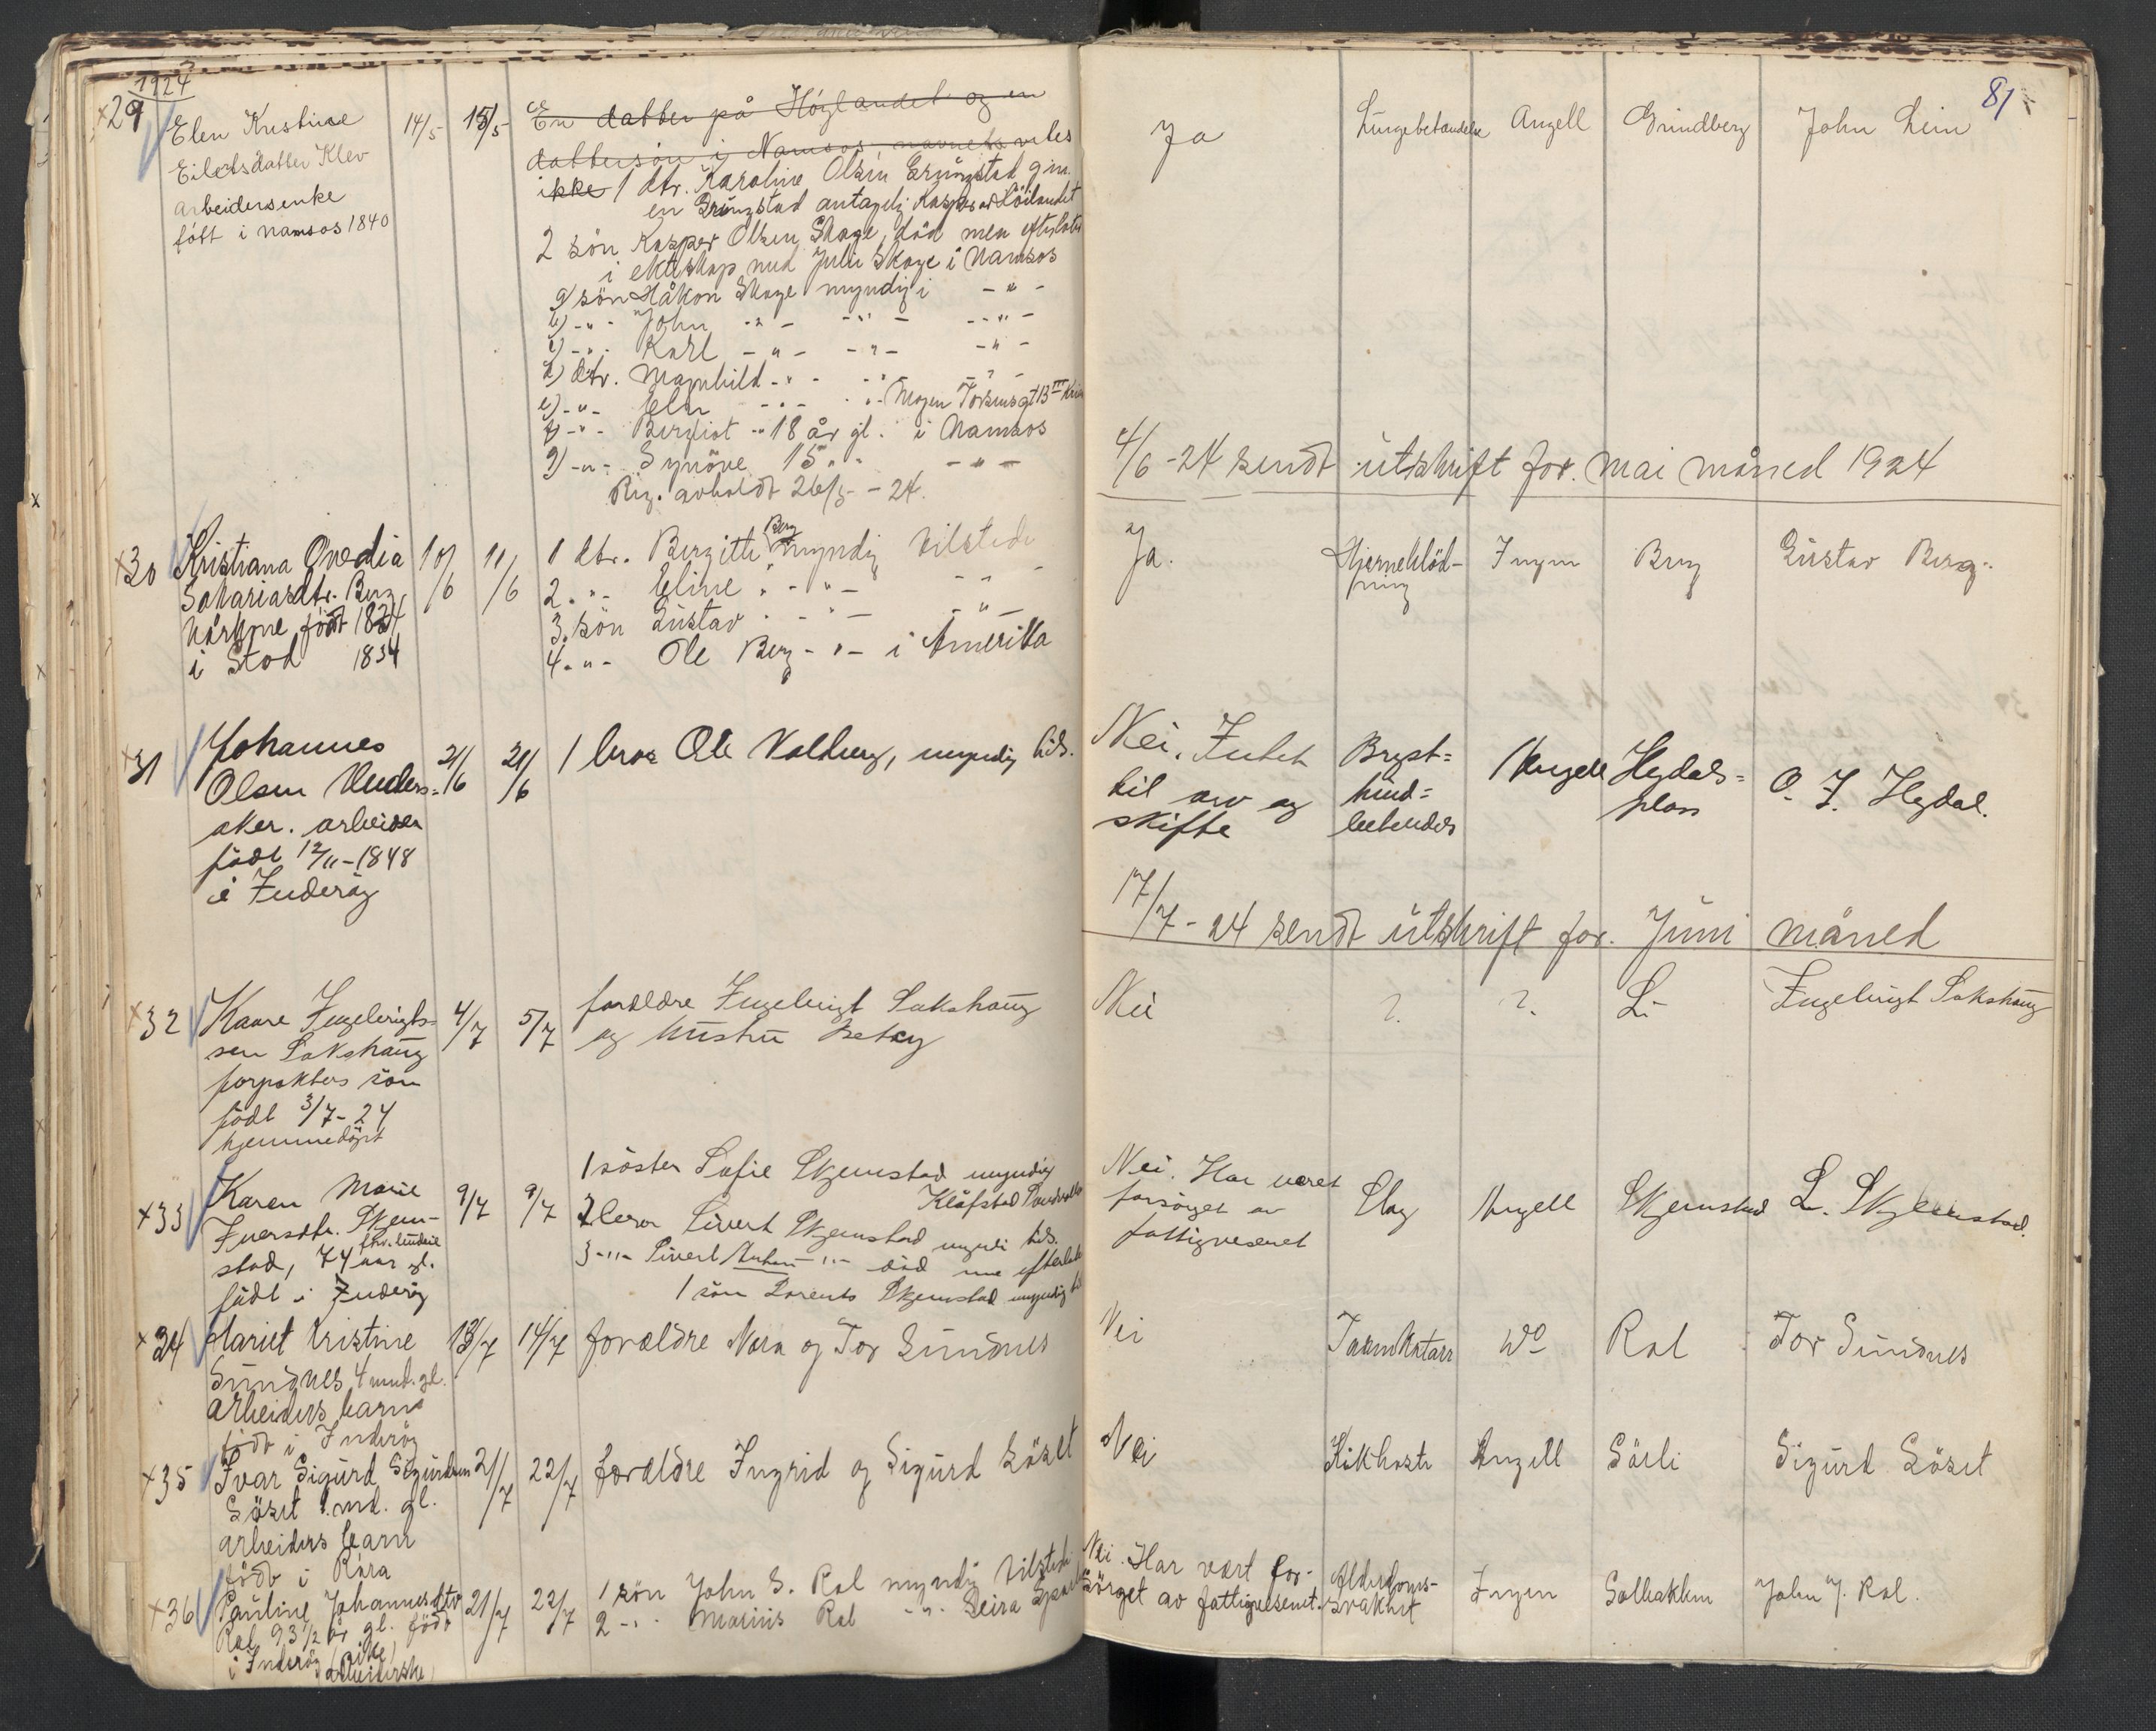 1924
29
Elen Kristine
Eilertsdatter Klev
arbeidersenke
født i Namsos 1840
14/5
15/5
En datter på Höylandet og en
dattersön i Namsos navnets vites
ikke 1 dtr. Karoline Olsen Grungstad g.m.
en Grungstad antagelig Kasper Höilandet
2 sön Kasper Olsen Skage, död men efterlatt
i ekteskap med Julie Skage i Namsos
a) sön Håkon Skage myndig i - " -
b) - " - John - " - - " - - " -
c) - " - Karl - " - - " - - " -
d) dtr. Magnhild - " - - " - - " -
e) - " - Elen - " - Mogen Torsensgt 13
f) - " - Bergliot - " 18 år gl. i Namsos
g) - " - Synöve 15 " " - " -
Reg. avholdt 26/5 - 24.
Ja
Lungebetendelse
Angell
Grundberg
John Lein
81
4/6 - 24 sendt utskrift for mai måned 1924
30
Kristiana Ovedia
Sakariasdtr. Berg
kårkone født 1834
i Stod 1834
10/6
11/6
1 dtr. Bergitte Berg myndig tilstede
2 - " - Eline - " - - " -
3. sön Gustav - " - - " -
4 - " - Ole Berg - " - i Amerika
Ja.
Hjerneblöd-
ning
Ingen
Berg
Gustav Berg
31
Johannes
Olsen Unders-
aker. arbeider
född 12/11 - 1848
i Inderöy
21/6
21/6
1 bror Ole Valberg, myndig tids.
Nei. Intet
til arv og
skifte
Bryst-
hind-
betendels
Angell
Hegdals-
plass
O. J. Hegdal.
17/7 - 24 sendt utskrift for Juni måned
32
Kaare Ingebrigts-
sen Sakshaug
forpakters sön
född 3/7 - 24
hjemmedöpt
4/7
5/7
foreldre Ingebrigt Sakshaug
og hustru Betsy
Nei
?
?
Li
Ingebrigt Sakshaug
33
Karen Marie
Iversdtr. Skjem-
stad, 74 aar gl.
född i Inderöy
9/7
9/7
1 söster Sofie Skjemstad myndig
Klæfstad
2 bror Sivert Skjemstad myndi tids.
3 - " - Sivert Anton - " - död men efterlatt
1 sön Lorents Skjemstad myndig
Nei. Har været
forsörget av
fattigvesenet
Slag
Angell
Skjemstad
L. Skjemstad.
34
Hariet Kristine
Sundnes 4 mnd. gl.
Arbeiders barn
född i Inderöy
13/7
14/7
foreldre Nera og Tor Sundnes
Nei
Tarmkatarr
Do
Rol
Tor Sundnes
35
Ivar Sigurd Sigurdsen
Söset md. gl.
arbeiders barn
född i Röra
21/7
22/7
foreldre Ingrid og Sigurd Söset
Nei
Kikhoste
Angell
Sörli
Sigurd Söset
36
Pauline Johannesdtr
Rol 93 1/2 år gl. född
i Inderöy
arbeiderske
21/7
22/7
1 sön John S. Rol myndig tilstede
2 - " - Marius Rol - " - Leira
Nei. Har vært for-
sörget av fattigvesenet.
Alderdoms-
svakhet
Ingen
Solbakken
John J. Rol.